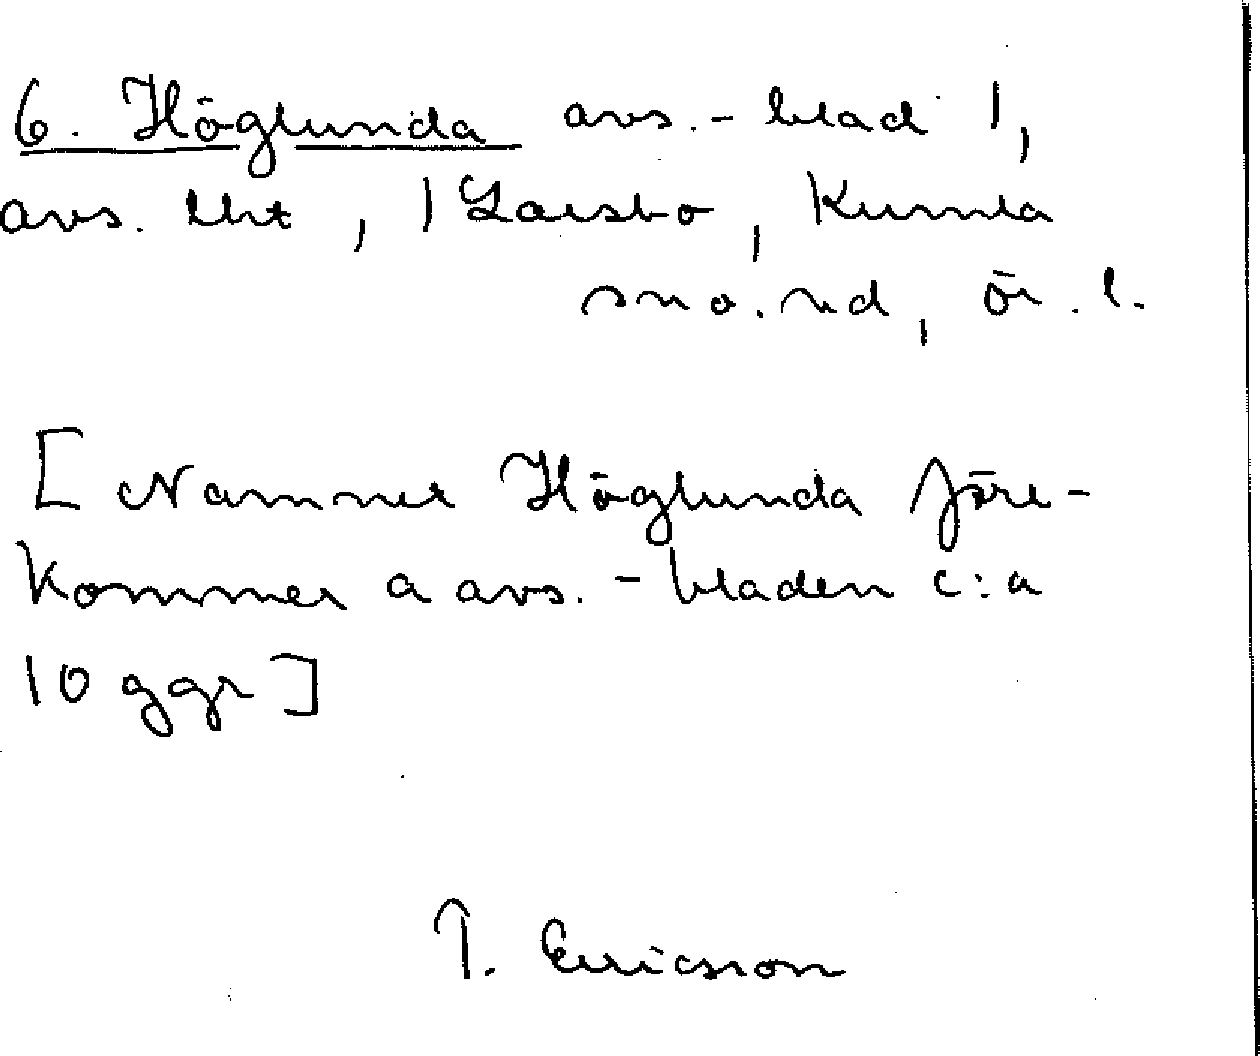 6. Höglunda avs.-blad 1,
avs. lht, Laisbo, Kumla
sno. rd, ör. l.
[Namnet Höglunda före-
kommer a avs.-bladen c:a
10 ggr]
T. Ericsson